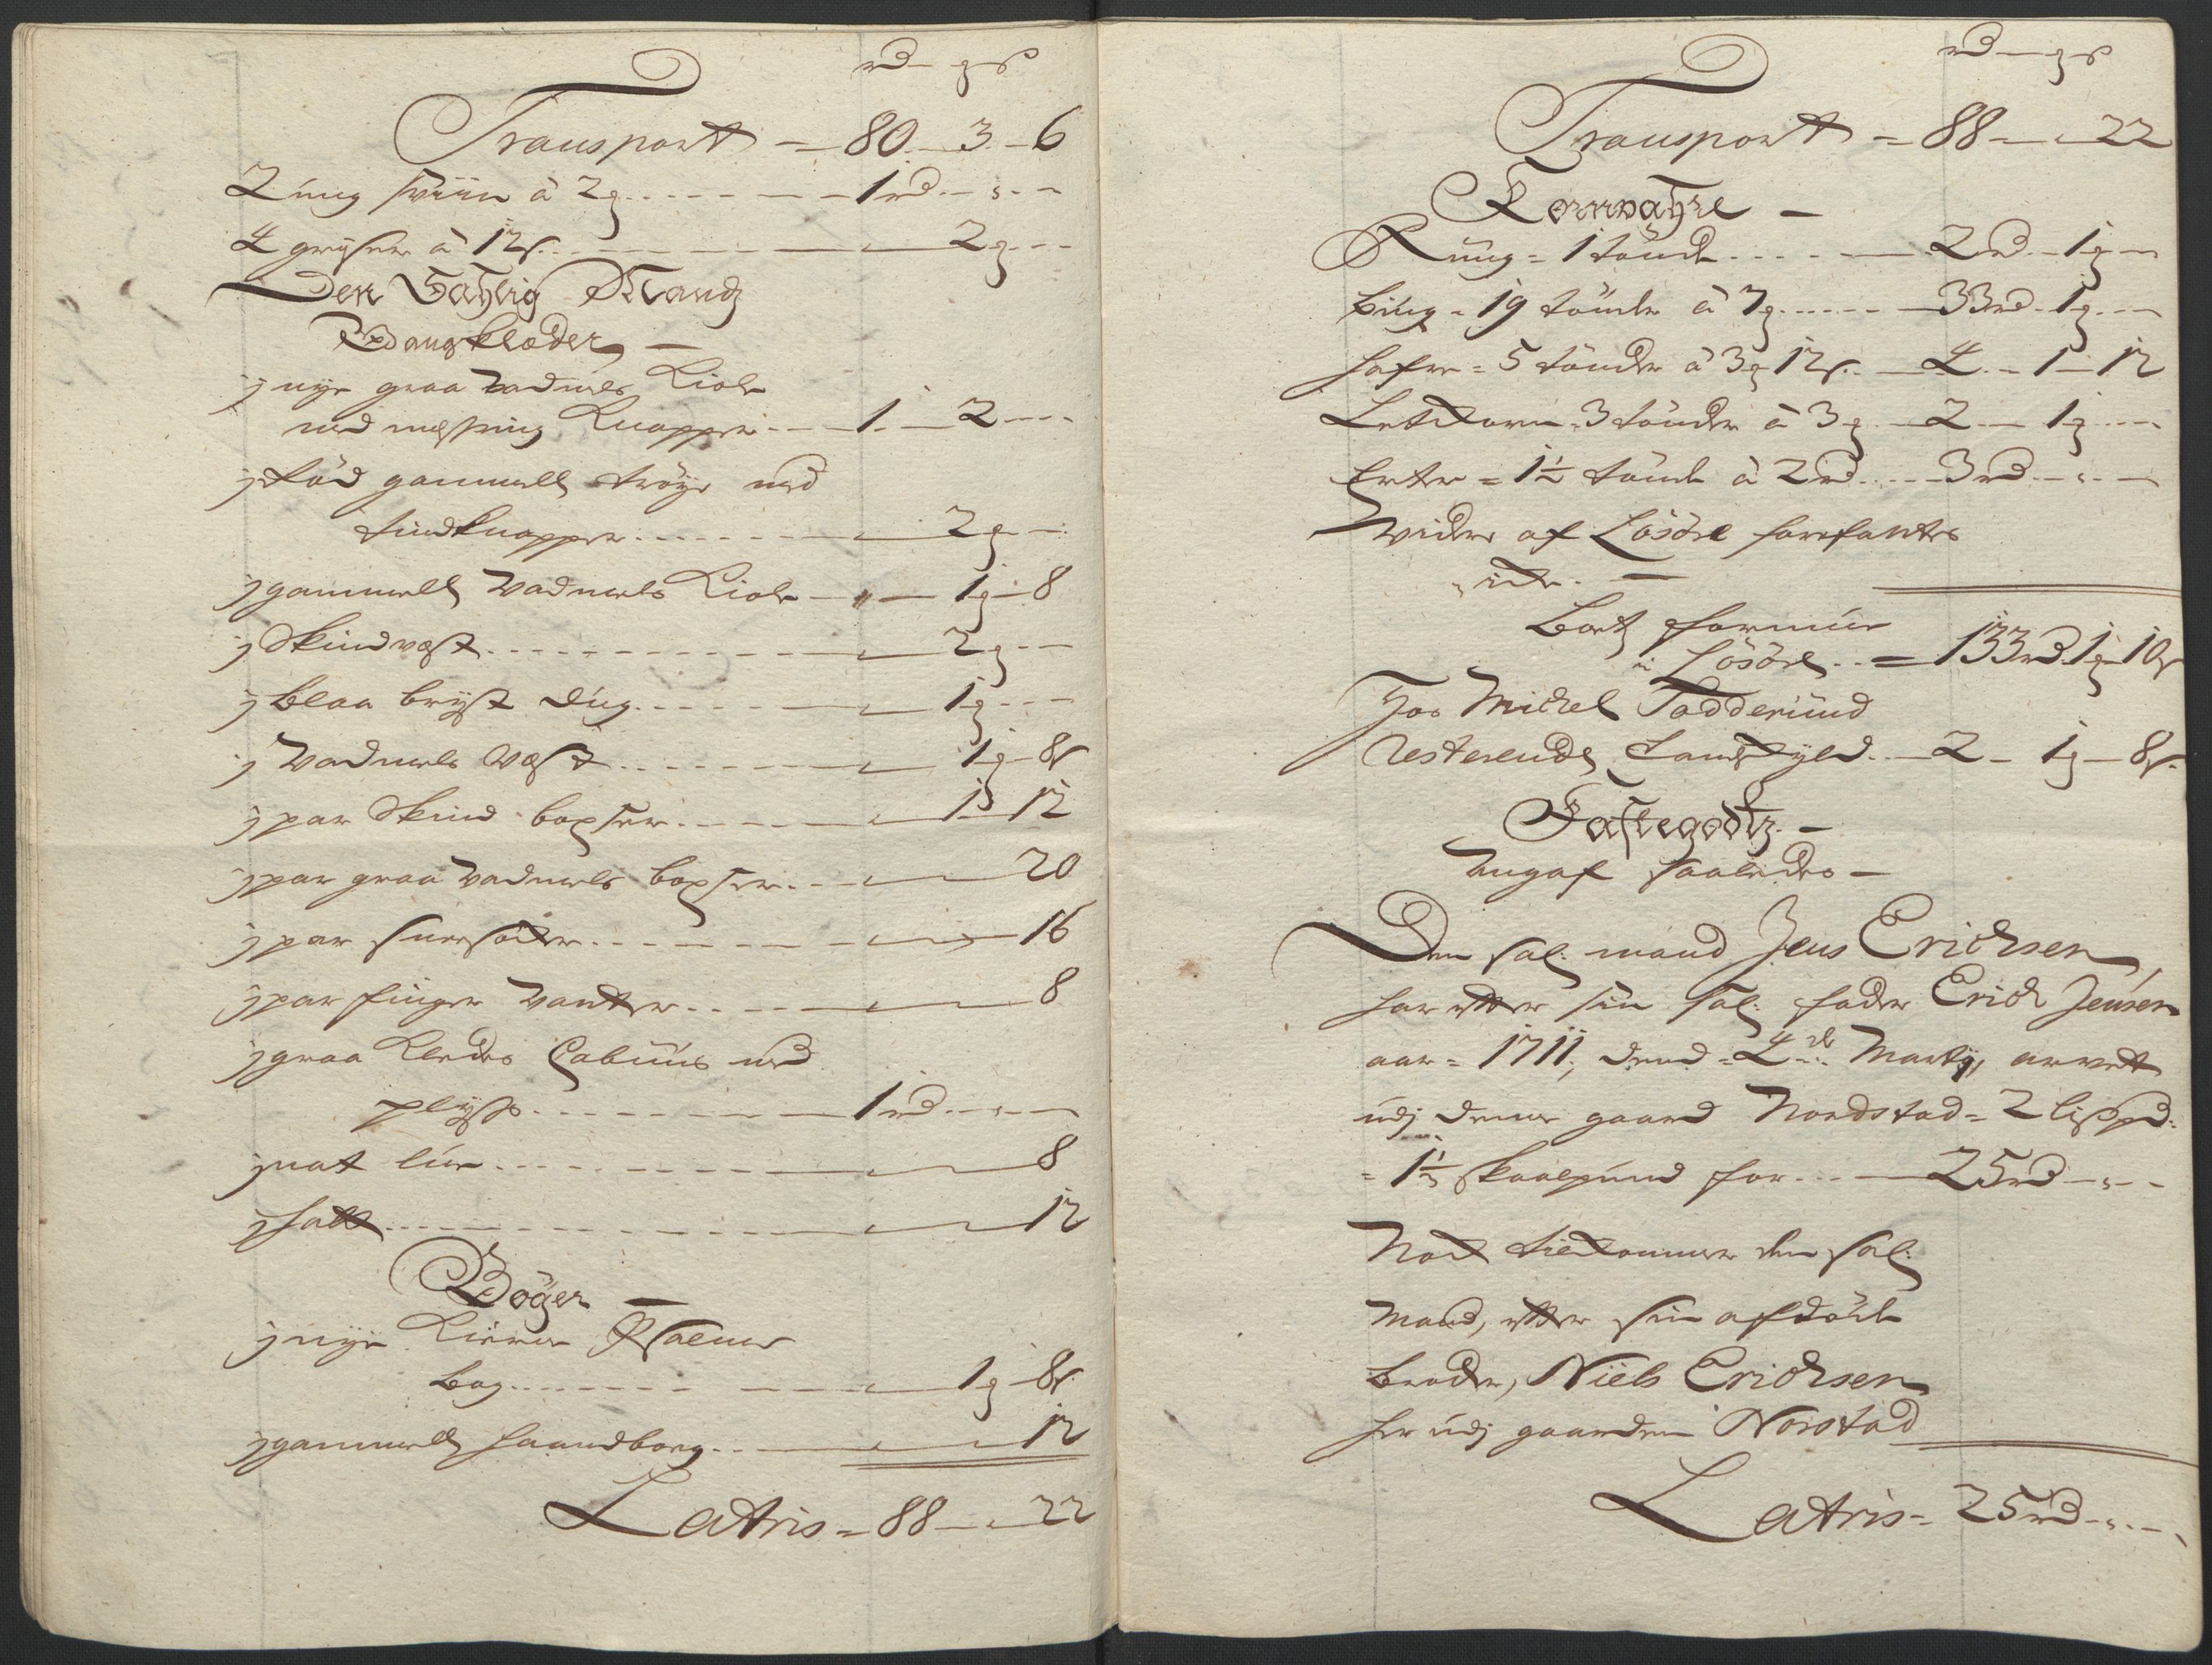 rd – ẜ – s
Transport – 80 – 3 – 6
2 ung sviin à 2 ẜ – 1 rd – " –
4 grisser à 12 s – 2 ẜ –
Den Sahlig Mandz
Gangklæder –
j nye graa Vadmels Kiole
med messing Knapper – 1 – 2 –
j rød gammell trøye med
tindknapper – 2 ẜ –
j gammell Vadmels Kiole – " – 1 ẜ – 8
j Skindvest – 2 ẜ –
j blaa bryst dug – 1 ẜ –
j Vadmels Vest – 1 ẜ – 8 s
j par Skind boxser – 1 – 12
j par graa Vadmels boxser – 20
j par – 16
j par finger Vanter – 8
j graa Kledes Cabuds med
plyss – 1 rd – " –
j nat lue – 8
j hatt – 12
Bøger –
j nye Psalme
bog – 1 ẜ – 8 s
j gammell haandbog – 12
Latris – 88 – " – 22
rd – ẜ – s
Transport – 88 – " – 22
Kornvahre –
Rüug – 1 tønde – 2 rd – 1 ẜ –
biug – 19 tønder à 7 ẜ – 33 rd – 1 ẜ –
hafre – 5 tønder à 3 ẜ 12 s – 4 – 1 – 12
3 tønder à 3 ẜ – 2 – 1 ẜ –
Erter – 1½ tønde à 2 rd – 3 rd – " –
Widere af Løsøre forefantes
icke –
Boetz formue
i Løsøre – 133 rd 1 ẜ 10 s
Hos Michel Tadderüud
Resterende Landskyld – 2 – 1 ẜ – 8 s
Fastegodtz –
Angaf saaledes –
Den Sal. mand Jens Erichsen
har efter sin Sal. fader Erich Jensen
aar 1711, dend 4de Marty, arvet
udj denne gaard Nordstad – 2 lispd:
1½ skaalpund for – 25 rd – " –
Nock tilkommer den sal.
Mand, efter sin afdøde
broder, Niels Erichsen
her udj gaarden Norstad
Latris – 25 rd – " –